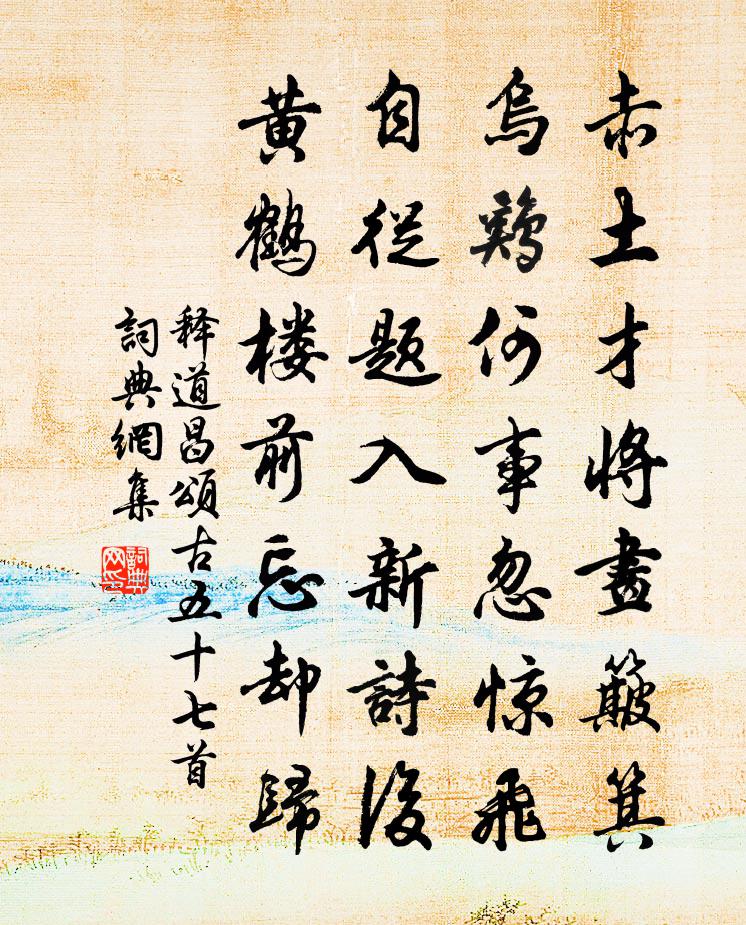 赤土才將畫簸箕
烏鷄何事忽惊飛
自從题入新詩後
黄鶴楼前忘却歸
释道昌頌古五十七首
詞典網集
詞典网印